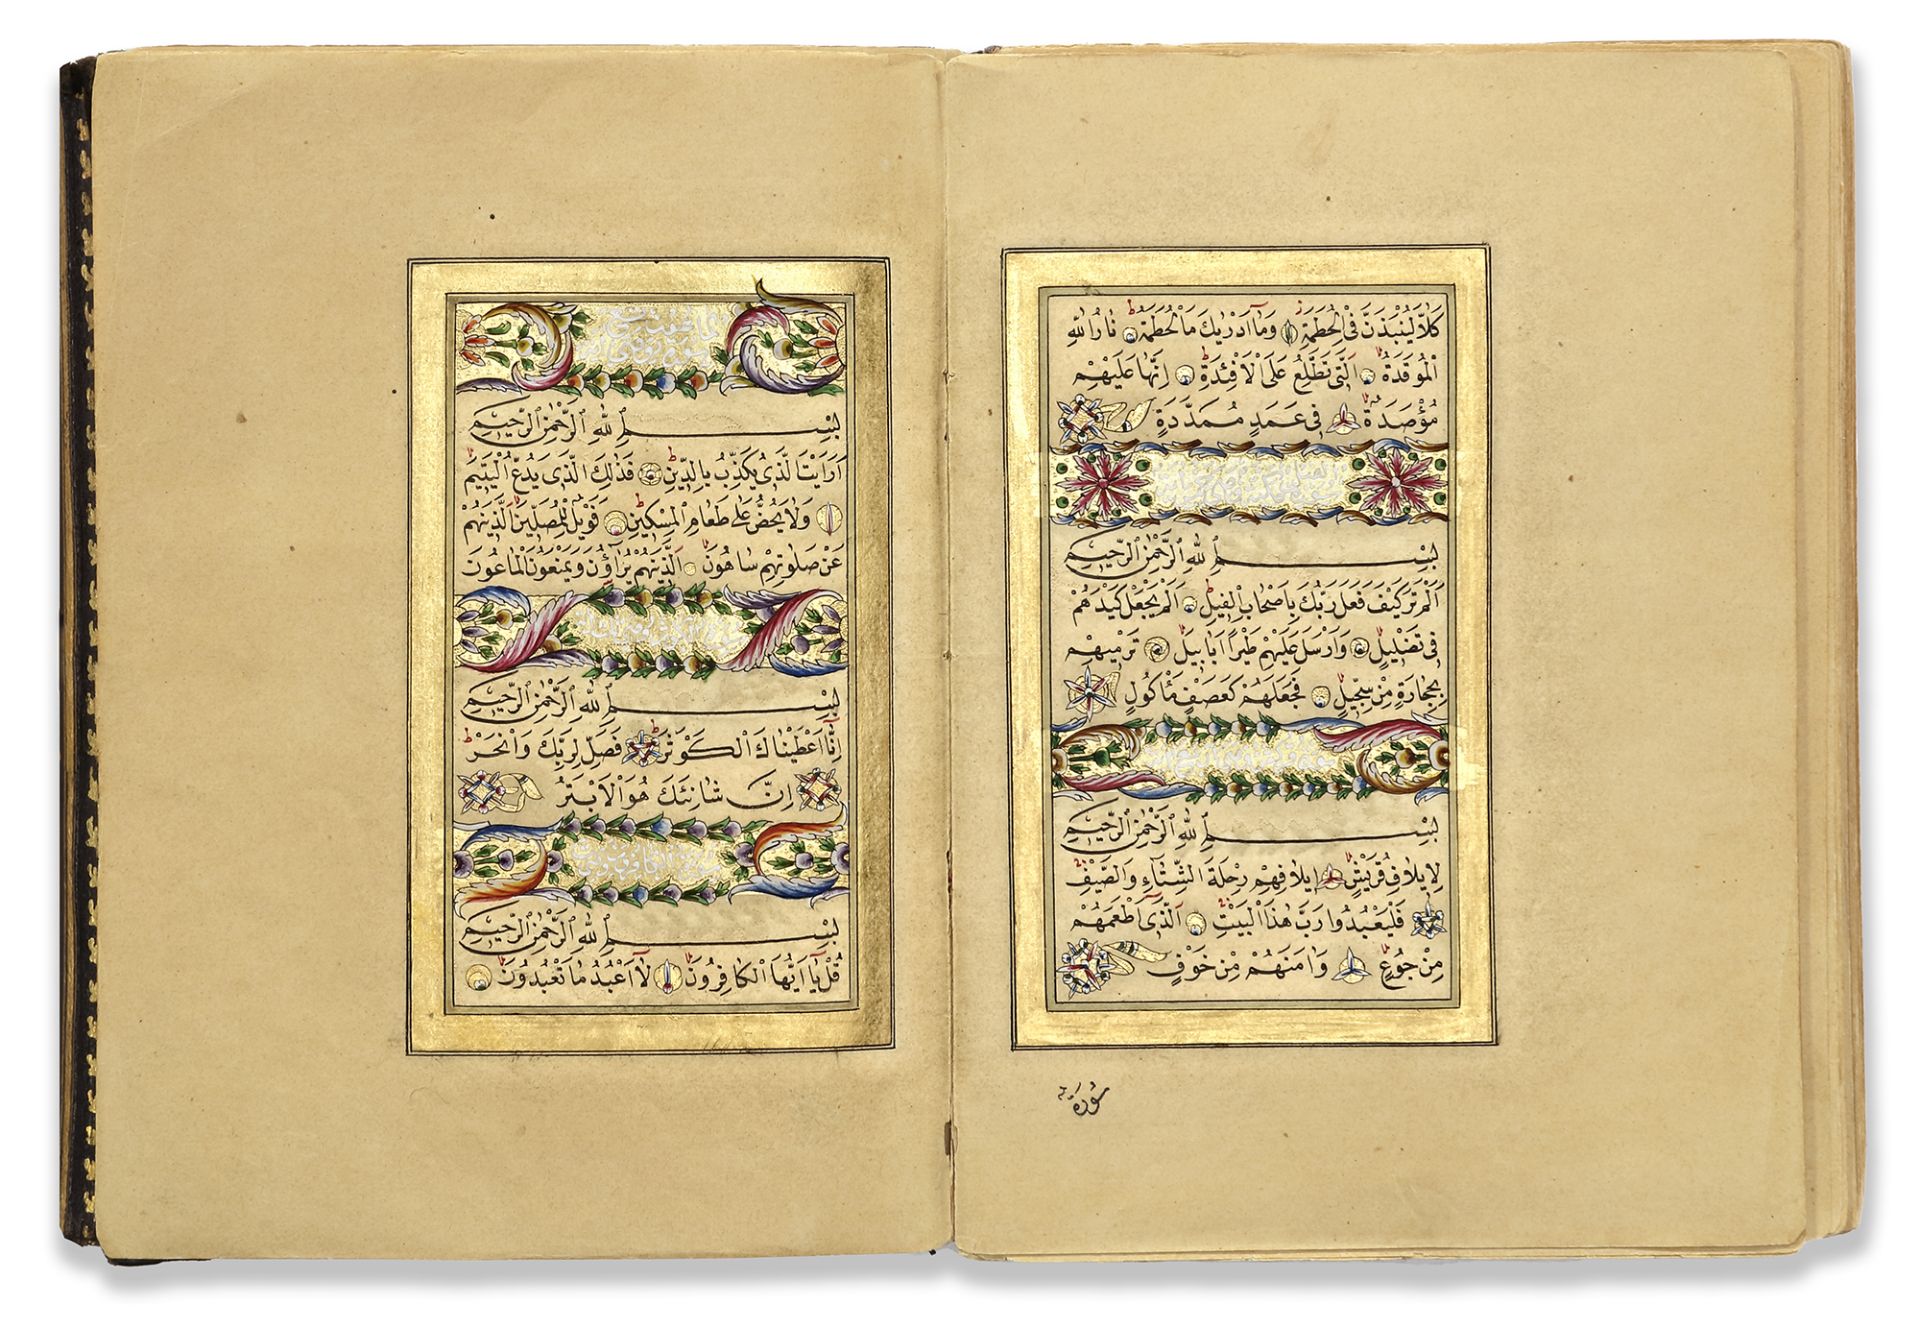 كَلَّا لَيُنْبَذَنَّ فِي الْحُطَمَةِ وَمَا اَدْرٰيكَ مَا الْحُطَمَةُ نَارُ اللّٰهِ
الْمُوقَدَةُ اَلَّتِي تَطَّلِعُ عَلَى الْاَفْئِدَةِ اِنَّهَا عَلَيْهِمْ
مُؤْصَدَةٌ فِي عَمَدٍ مُمَدَّدَةٍ
بِسْمِ اللّٰهِ الرَّحْمٰنِ الرَّحِيمِ
اَلَمْ تَرَ كَيْفَ فَعَلَ رَبُّكَ بِاَصْحَابِ الْفِيلِ اَلَمْ يَجْعَلْ كَيْدَهُمْ
فِي تَضْلِيلٍ وَاَرْسَلَ عَلَيْهِمْ طَيْرًا اَبَابِيلَ تَرْمِيهِمْ
بِحِجَارَةٍ مِنْ سِجِّيلٍ فَجَعَلَهُمْ كَعَصْفٍ مَأْكُولٍ
بِسْمِ اللّٰهِ الرَّحْمٰنِ الرَّحِيمِ
لِاِيلَافِ قُرَيْشٍ اِيلَافِهِمْ رِحْلَةَ الشِّتَاءِ وَالصَّيْفِ
فَلْيَعْبُدُوا رَبَّ هٰذَا الْبَيْتِ اَلَّذِي اَطْعَمَهُمْ
مِنْ جُوعٍ وَاٰمَنَهُمْ مِنْ خَوْفٍ
سُورَةُ
بِسْمِ اللّٰهِ الرَّحْمٰنِ الرَّحِيمِ
اَرَاَيْتَ الَّذِي يُكَذِّبُ بِالدِّينِ فَذٰلِكَ الَّذِي يَدُعُّ الْيَتِيمَ
وَلَا يَحُضُّ عَلٰى طَعَامِ الْمِسْكِينِ فَوَيْلٌ لِلْمُصَلِّينَ اَلَّذِينَ هُمْ
عَنْ صَلٰوتِهِمْ سَاهُونَ اَلَّذِينَ هُمْ يُرَاؤُنَ وَيَمْنَعُونَ الْمَاعُونَ
بِسْمِ اللّٰهِ الرَّحْمٰنِ الرَّحِيمِ
اِنَّا اَعْطَيْنَاكَ الْكَوْثَرَ فَصَلِّ لِرَبِّكَ وَانْحَرْ
اِنَّ شَانِئَكَ هُوَ الْاَبْتَرُ
بِسْمِ اللّٰهِ الرَّحْمٰنِ الرَّحِيمِ
قُلْ يَا اَيُّهَا الْكَافِرُونَ لَا اَعْبُدُ مَا تَعْبُدُونَ